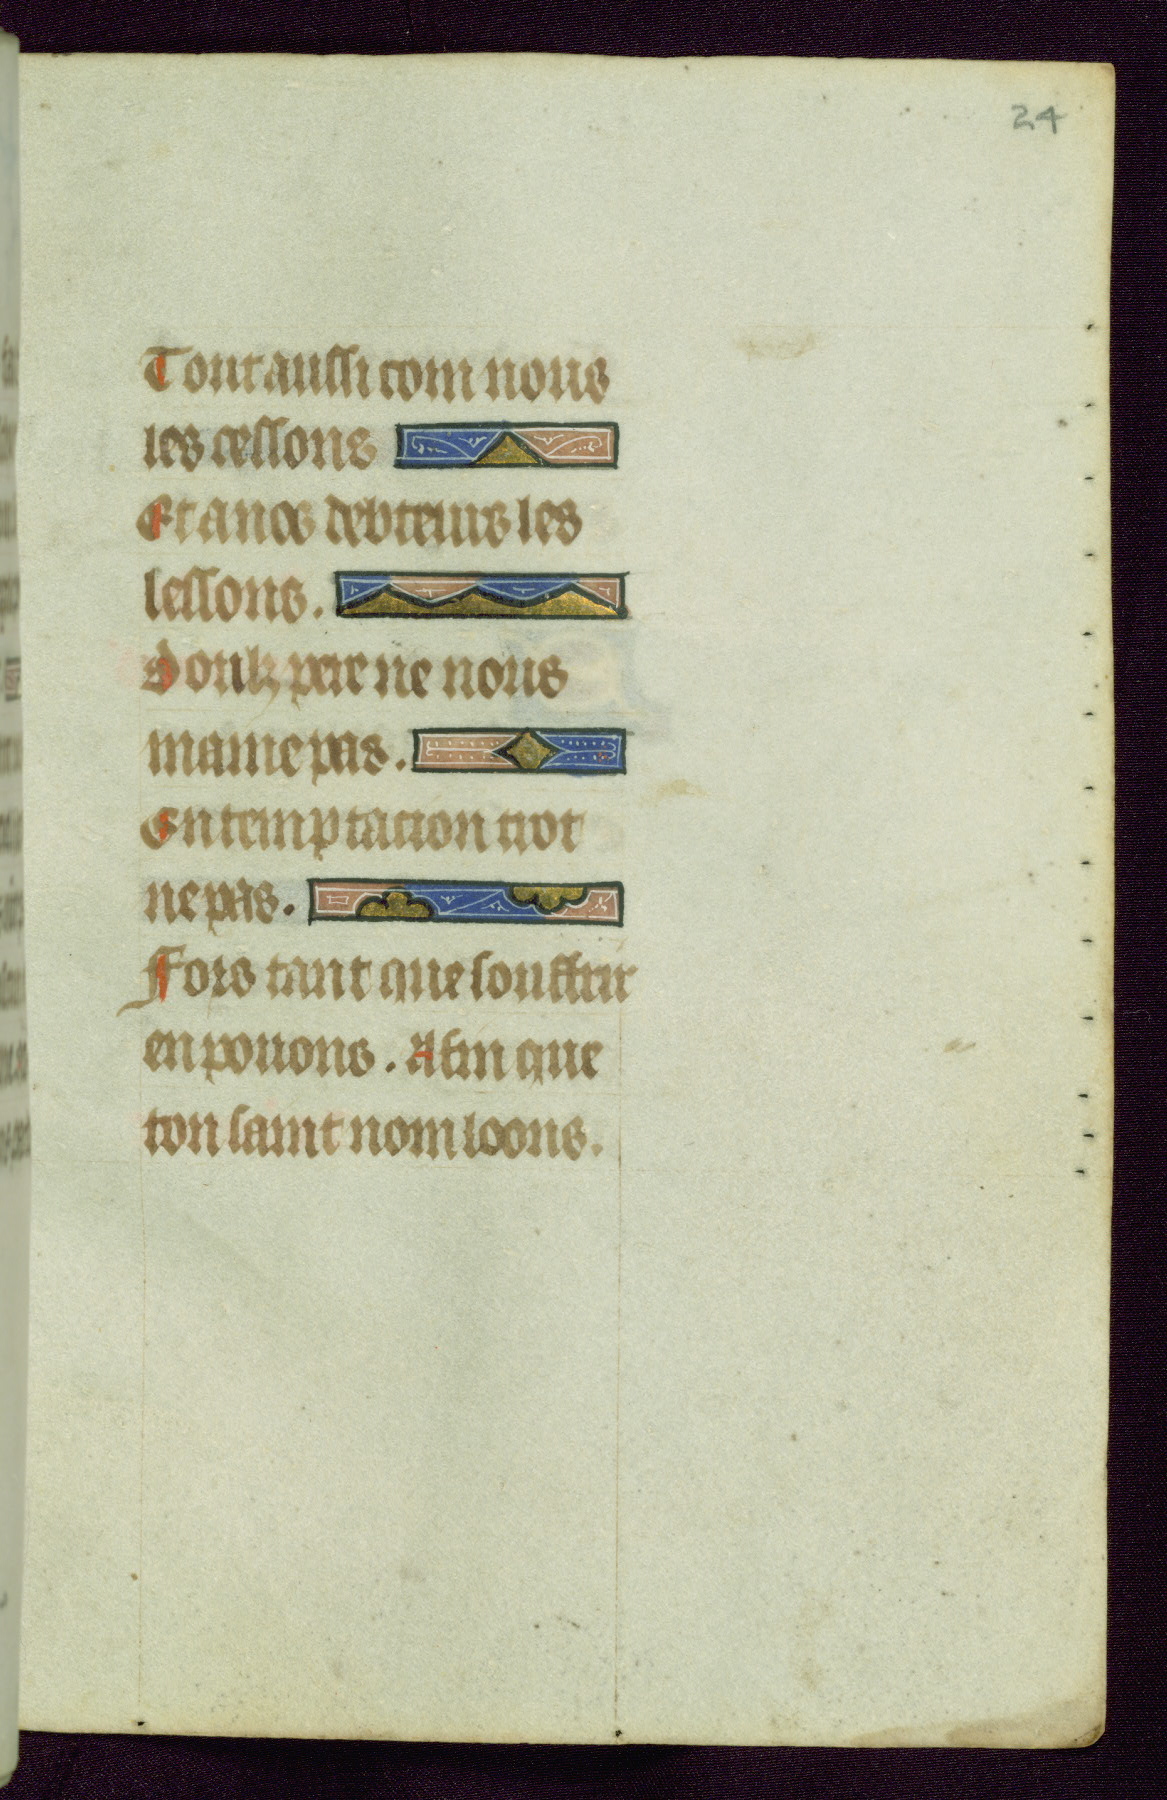 24
Tout aussi com nous
les cessons
Et a nos debteurs les
lessons.
Doulz pere ne nous
maine pas.
En temptacion trot
ne pas.
Fors tant que souffrir
en pouons. Afin que
ton saint nom loons.